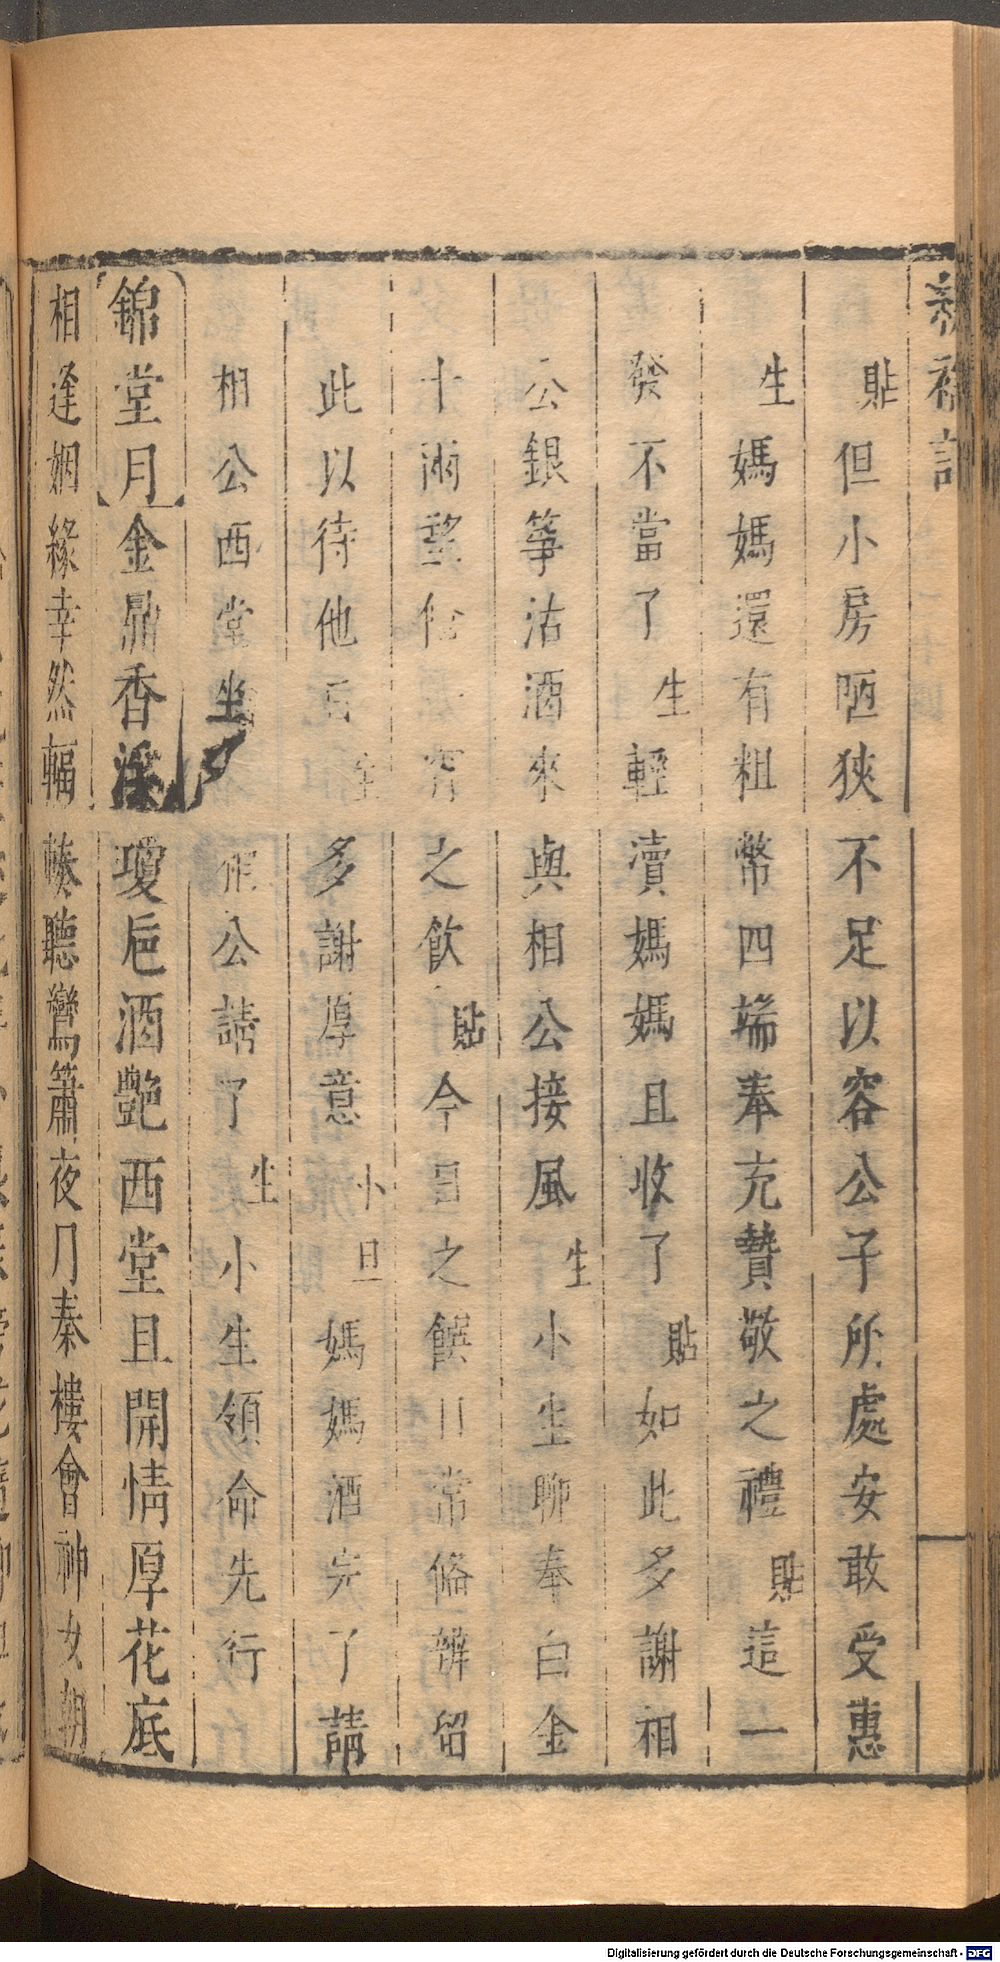 貼但小房陋狹不足以容公子所處安敢受惠
生媽媽還有粗幣四端奉充贄敬之禮貼這一
發不當了生輕瀆媽媽且收了貼如此多謝相
公銀箏沽酒來與相公接風生小生聊奉白金
十兩之飲貼今日之饌日常俻辦留
此以待他多謝厚意小旦媽媽酒完了請
相公西堂坐公請了生小生領命先行
錦堂月金鼎香瓊巵酒艶西堂且開情厚花底
相逢姻緣幸然輻輳聽鸞簫夜月秦樓會神女朝
Digitalisierung gefördert durch die Deutsche Forschungsgemeinschaft - DFG